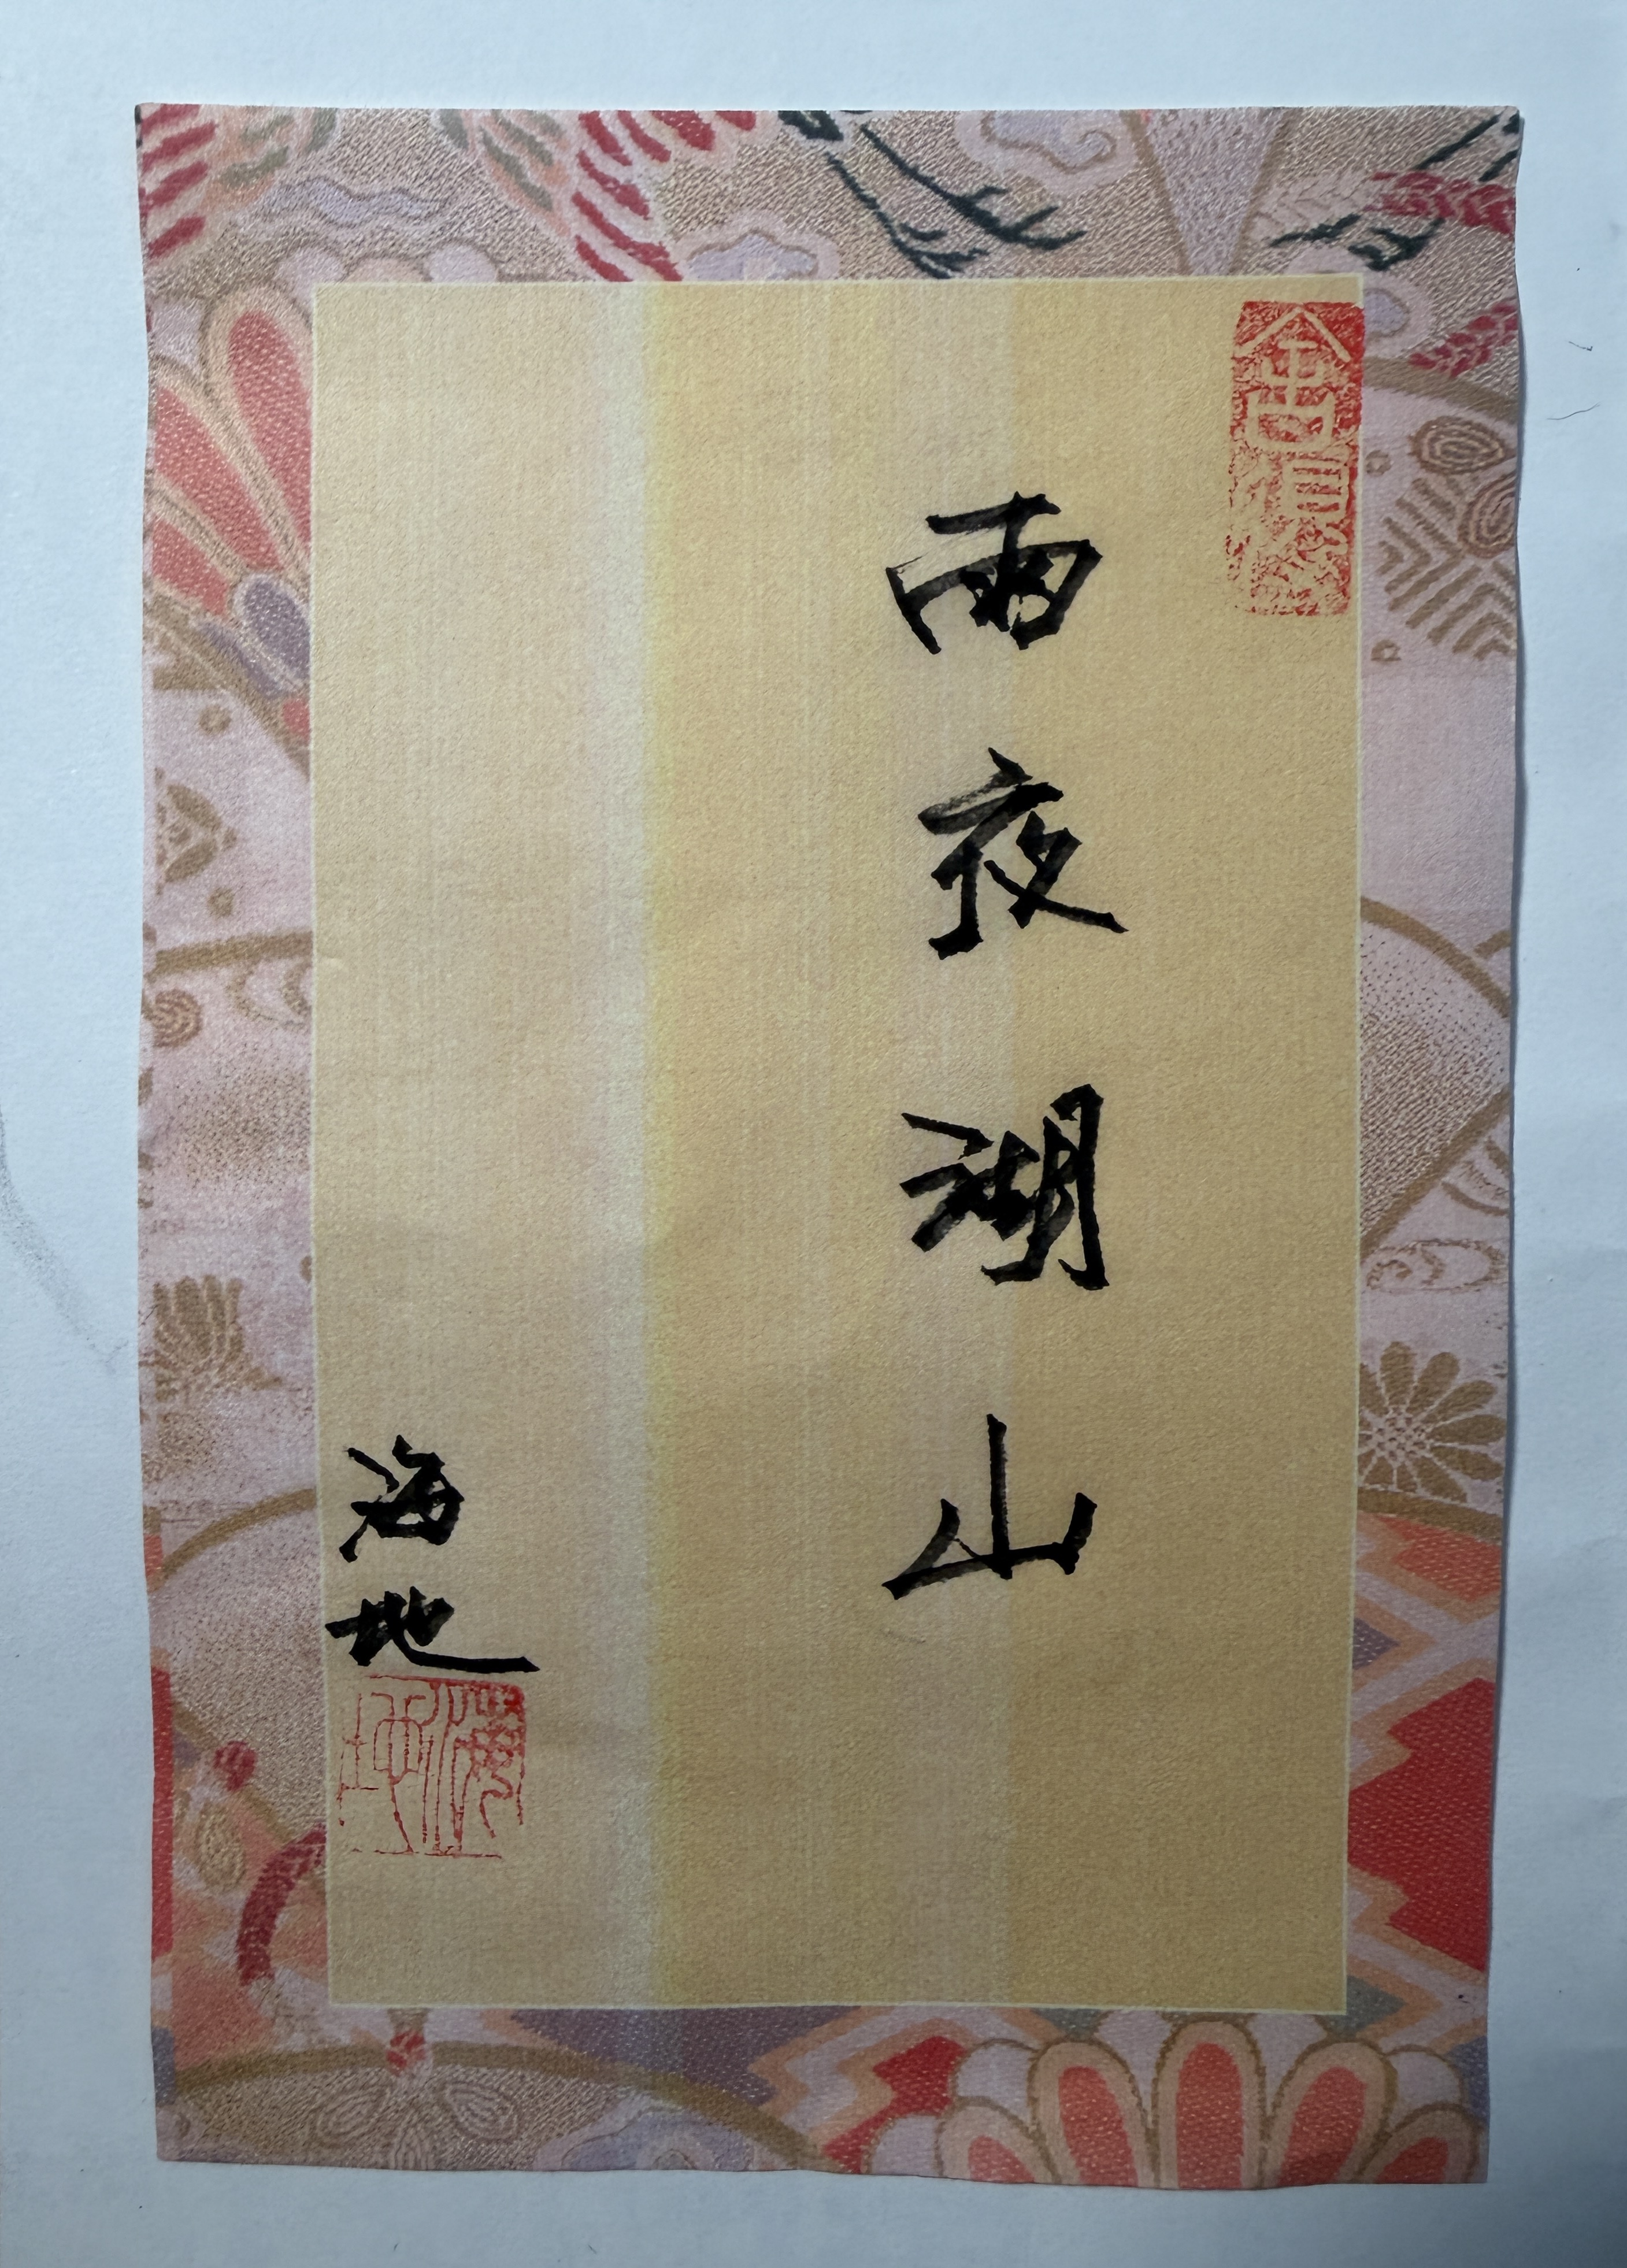 雨夜湖山
海地